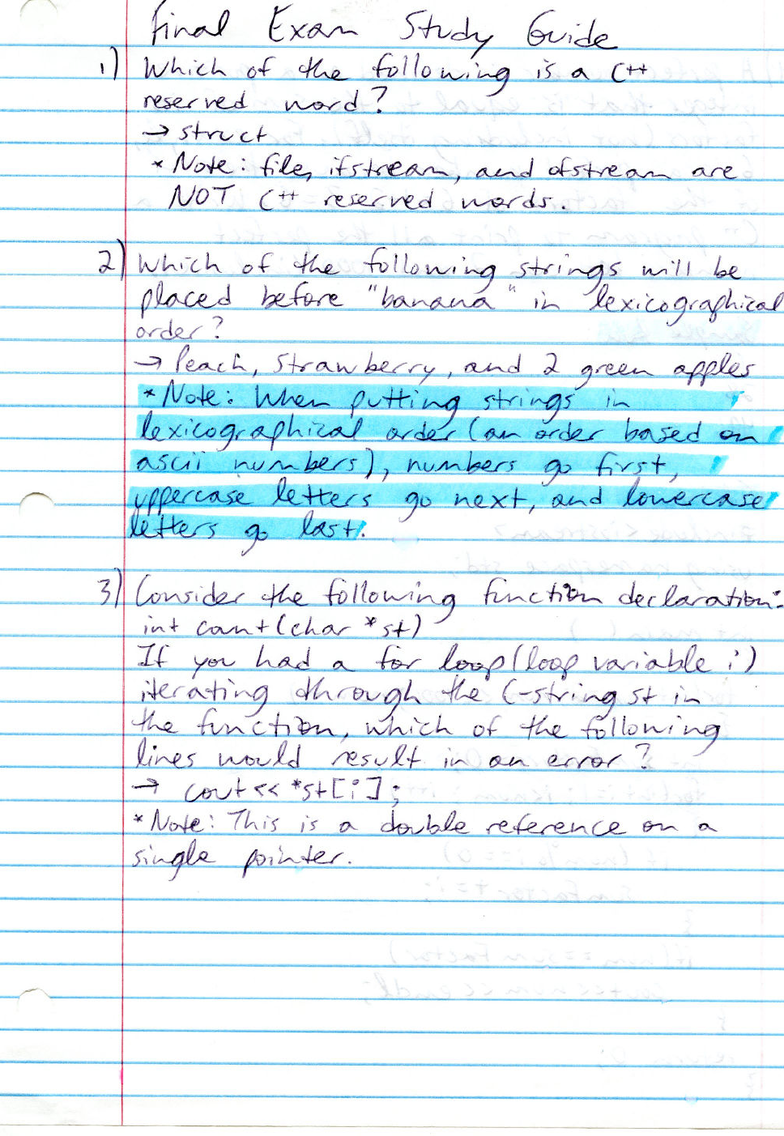 Final Exam Study Guide
1) Which of the following is a C++
reserved word?
→ struct
* Note: file, ifstream, and ofstream are
NOT C++ reserved words.
2) Which of the following strings will be
placed before "banana" in lexicographical
order?
→ Peach, Strawberry, and 2 green apples
* Note: When putting strings in
lexicographical order (an order based on
ascii numbers), numbers go first,
uppercase letters go next, and lowercase
letters go last.
3) Consider the following function declaration:
int count(char *st)
If you had a for loop (loop variable i)
iterating through the C-string st in
the function, which of the following
lines would result in an error?
→ cout << *st[i];
* Note: This is a double reference on a
single pointer.